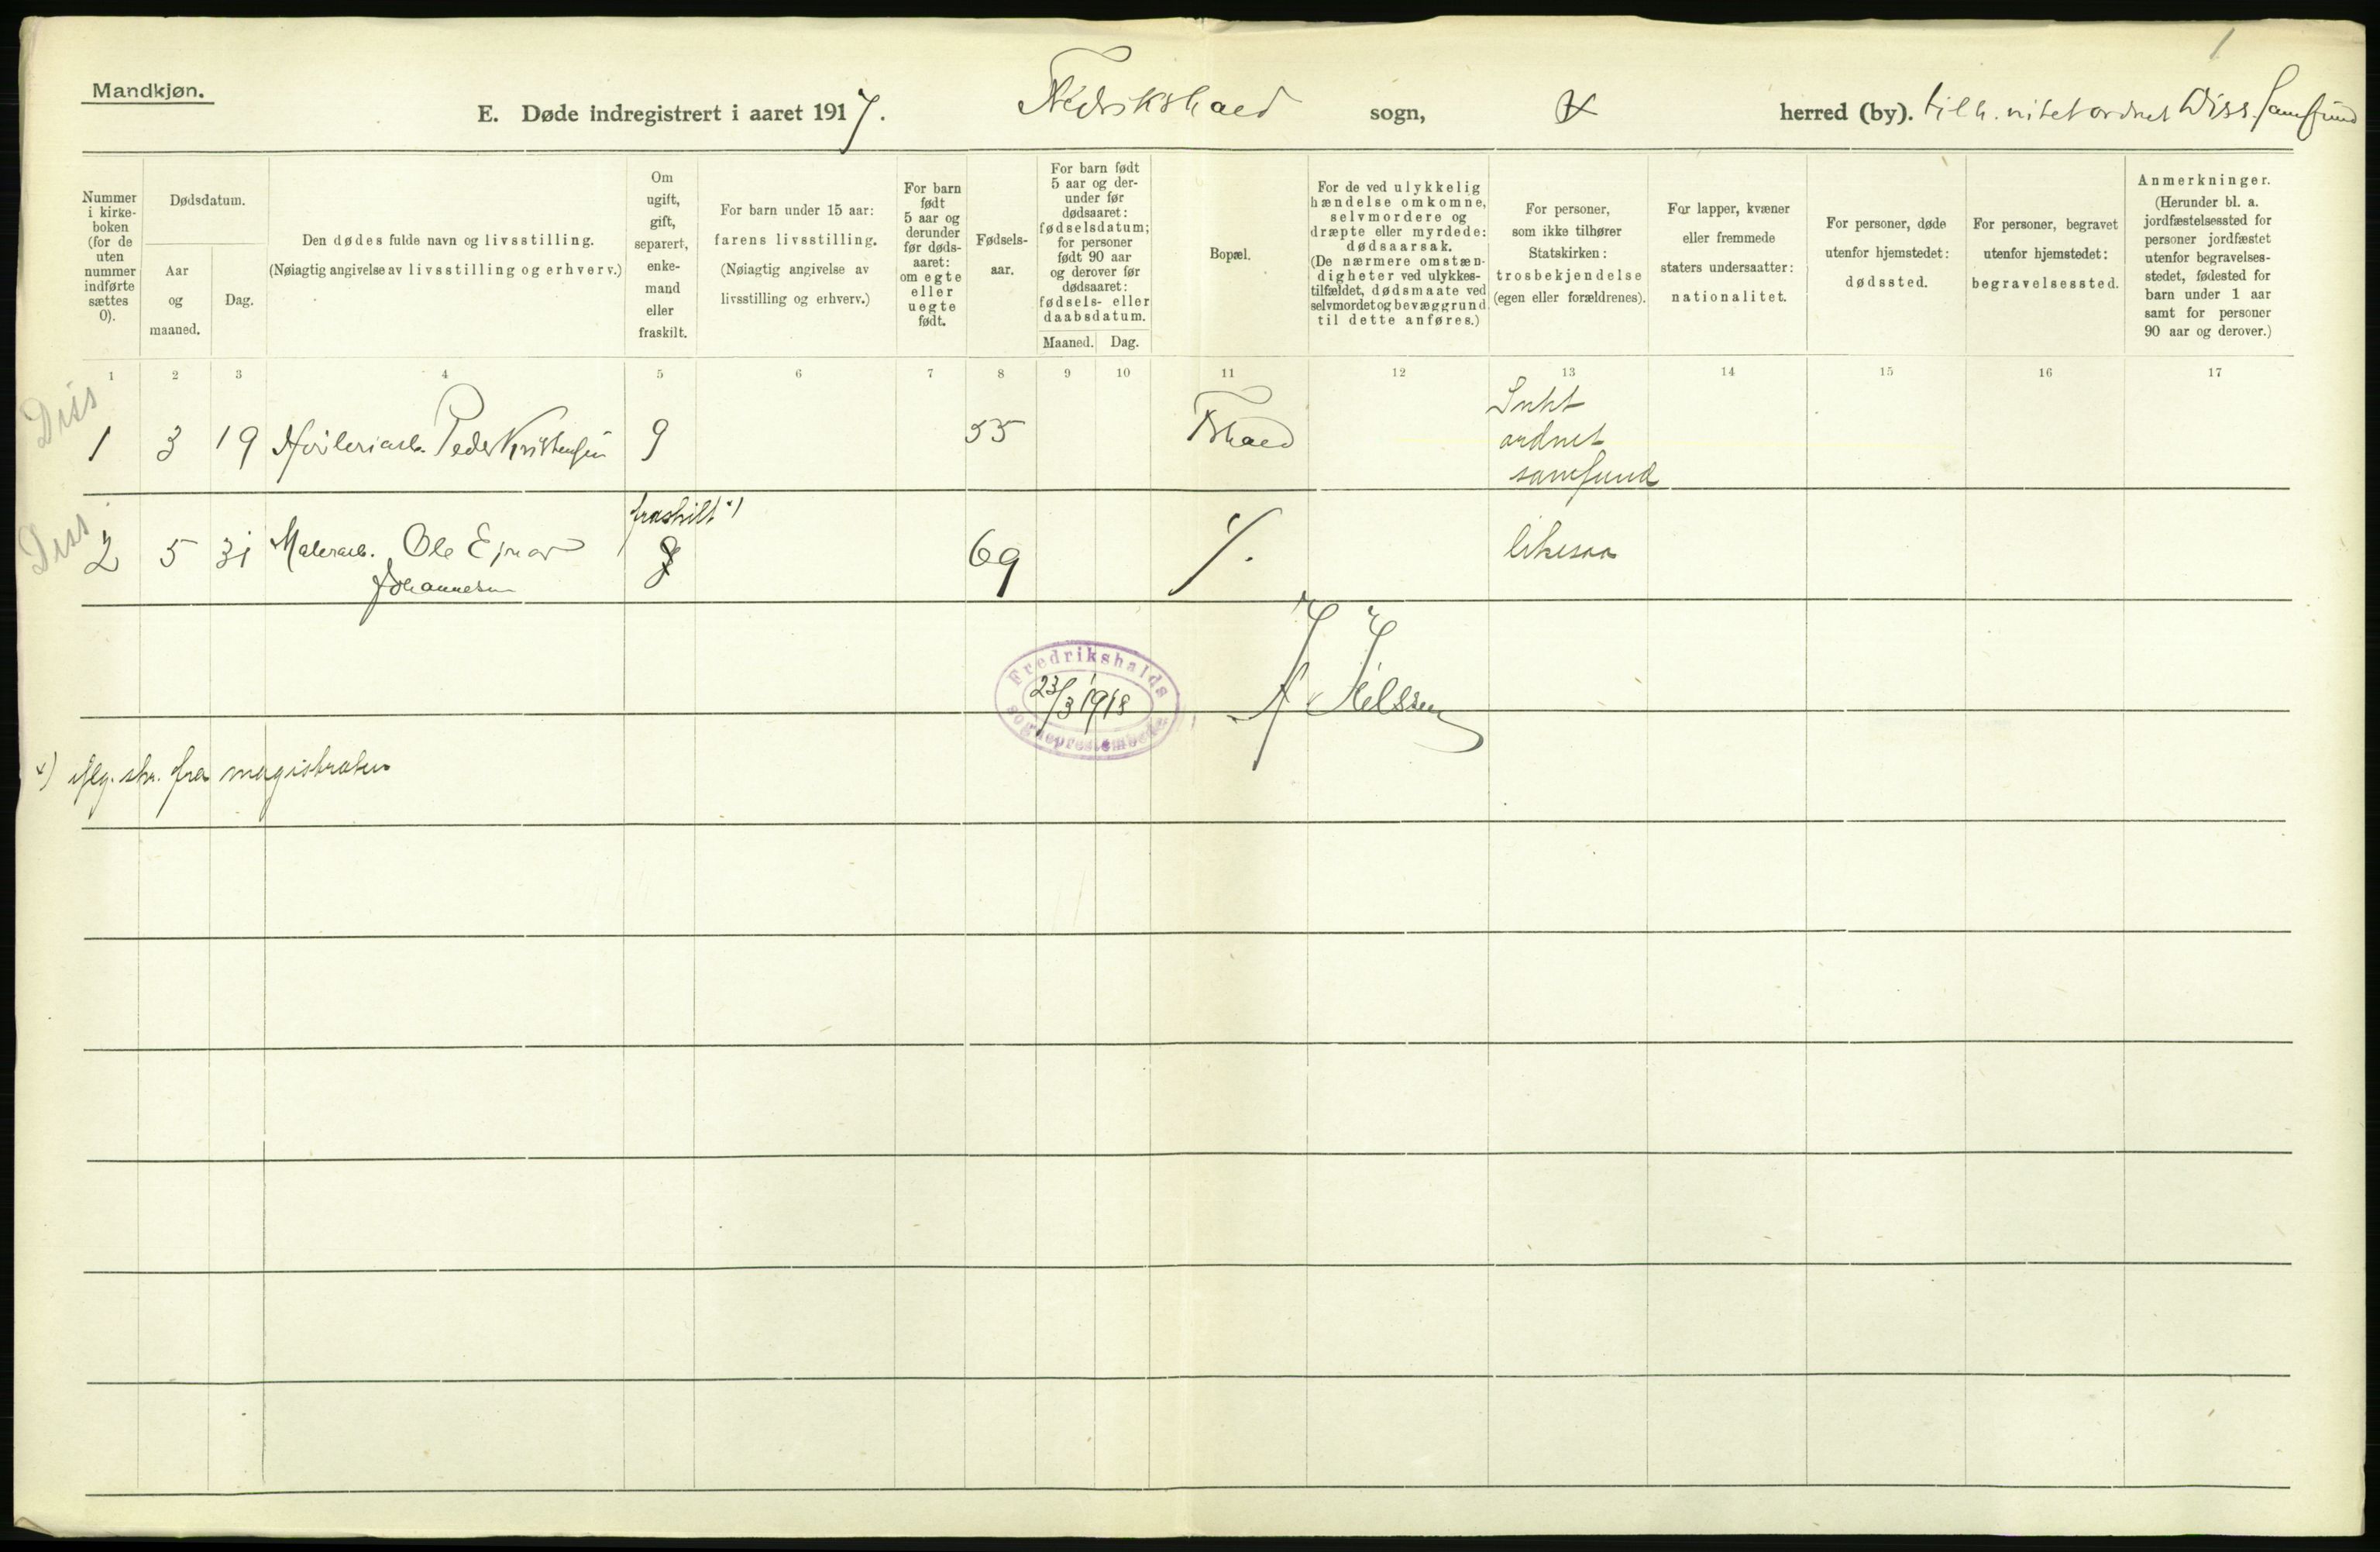 1
Mandkjøn.
E. Døde indregistrert i aaret 1917. Fredrikshald sogn, herred (by). tilh. intet ordnet Diss. samfund
Nummer
i kirke-
boken
(for de
uten
nummer
indførte
sættes
0).
Dødsdatum.
Aar
og
maaned.
Dag.
Den dødes fulde navn og livsstilling.
(Nøiagtig angivelse av livsstilling og erhverv.)
Om
ugift,
gift,
separert,
enke-
mand
eller
fraskilt.
For barn under 15 aar:
farens livsstilling.
(Nøiagtig angivelse av
livsstilling og erhverv.)
For barn
født
5 aar og
derunder
før døds-
aaret:
om egte
eller
uegte
født.
Fødsels-
aar.
For barn født
5 aar og der-
under før
dødsaaret:
fødselsdatum;
for personer
født 90 aar
og derover før
dødsaaret:
fødsels- eller
daabsdatum.
Maaned. Dag.
Bopæl.
For de ved ulykkelig
hændelse omkomne,
selvmordere og
dræpte eller myrdede:
dødsaarsak.
(De nærmere omstæn-
digheter ved ulykkes-
tilfældet, dødsmaate ved
selvmordet og bevæggrund
til dette anføres.)
For personer,
som ikke tilhører
Statskirken:
trosbekjendelse
(egen eller forældrenes).
For lapper, kvæner
eller fremmede
staters undersaatter:
nationalitet.
For personer, døde
utenfor hjemstedet:
dødssted.
For personer, begravet
utenfor hjemstedet:
begravelsessted.
Anmerkninger.
(Herunder bl. a.
jordfæstelsessted for
personer jordfæstet
utenfor begravelses-
stedet, fødested for
barn under 1 aar
samt for personer
90 aar og derover.)
1 2 3 4 5 6 7 8 9 10 11 12 13 14 15 16 17
Diss
1 3 19 Høvleriarb. Peder Kristensen g 55 Fshald Intet
ordnet
samfund
Diss
fraskilt *)
2 5 31 Malerarb. Ole Ejnar g 69 likesaa
Johannesen
Fredrikshalds
23/3 1918
sogneprestembede
Nilssen
*) iflg. skr. fra magistraten